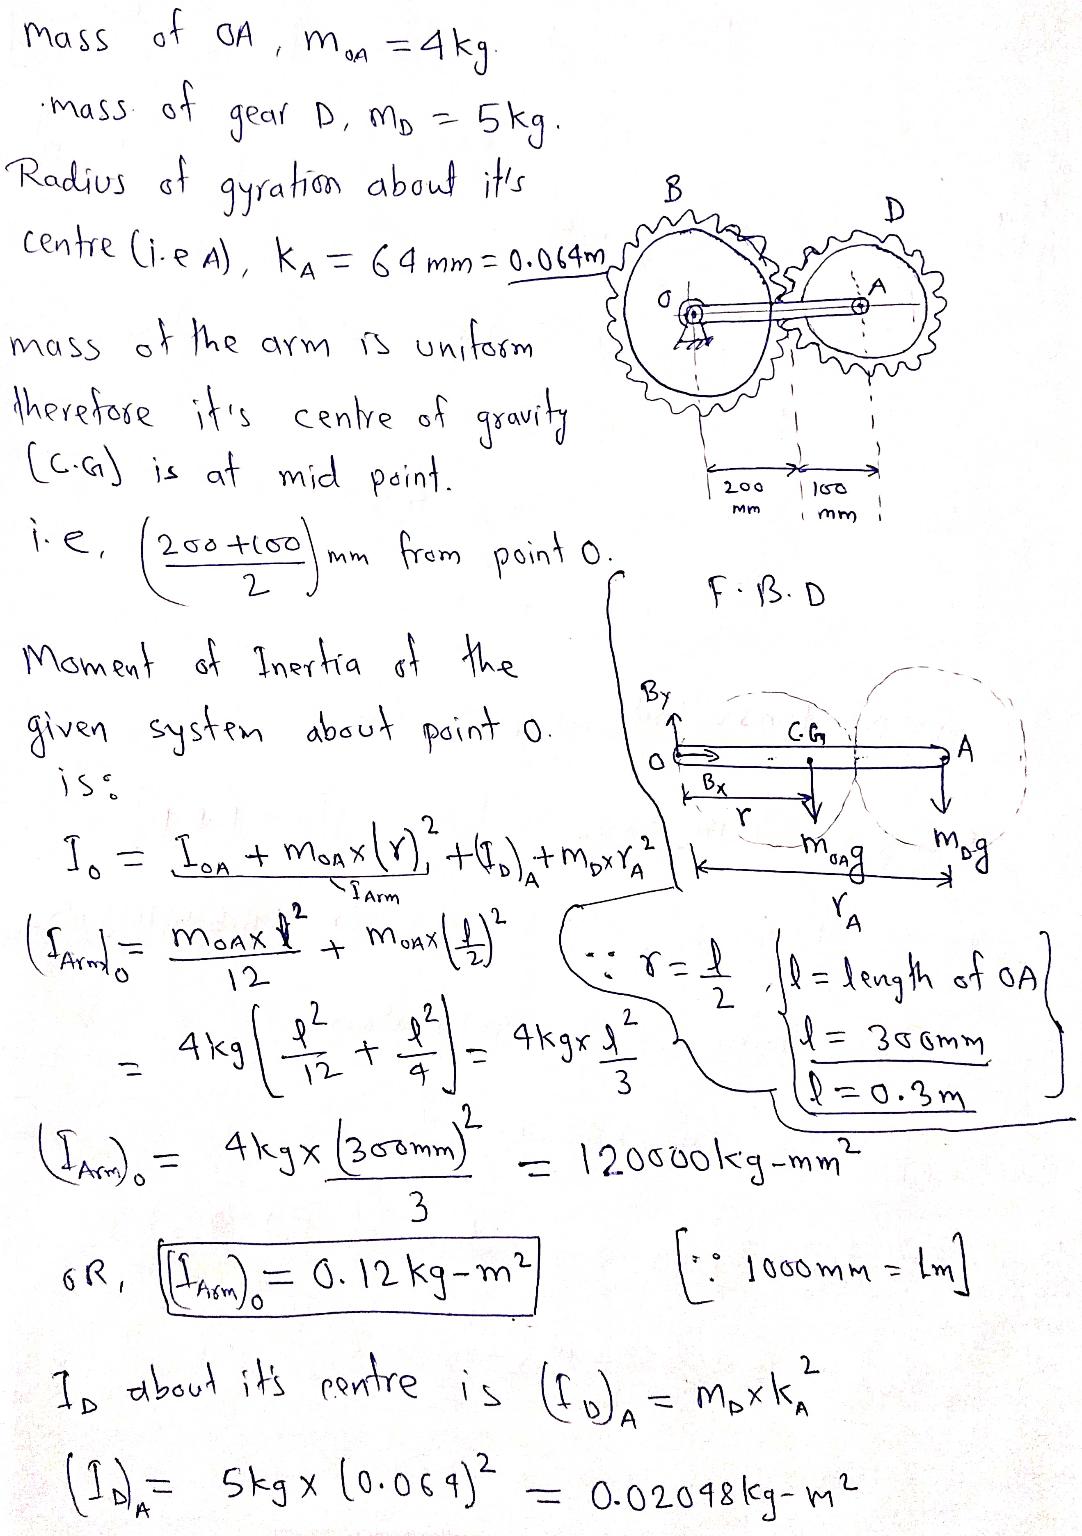 mass of OA, m_OA = 4kg.
mass of gear D, m_D = 5kg.
Radius of gyration about it's
centre (i.e A), K_A = 64mm = 0.064m
B
D
O
A
mass of the arm is uniform
therefore it's centre of gravity
(C.G) is at mid point.
200 mm
100 mm
i.e, ((200+100)/2) mm from point O.
F.B.D
Moment of Inertia of the
given system about point O.
is:
By
O
Bx
C.G
A
r
m_OA g
m_D g
r_A
I_O = I_OA + m_OA×(r)² + (I_D)_A + m_D×r_A²
I_Arm
(I_Arm)_O = m_OA×l²/12 + m_OA×(l/2)²
∵ r = l/2, {l = length of OA
l = 300mm
l = 0.3m}
= 4kg(l²/12 + l²/4) = 4kg× l²/3
(I_Arm)_O = 4kg×(300mm)²/3 = 120000kg-mm²
OR, (I_Arm)_O = 0.12kg-m² [∵ 1000mm = 1m]
I_D about it's centre is (I_D)_A = m_D×k_A²
(I_D)_A = 5kg×(0.064)² = 0.02048kg-m²